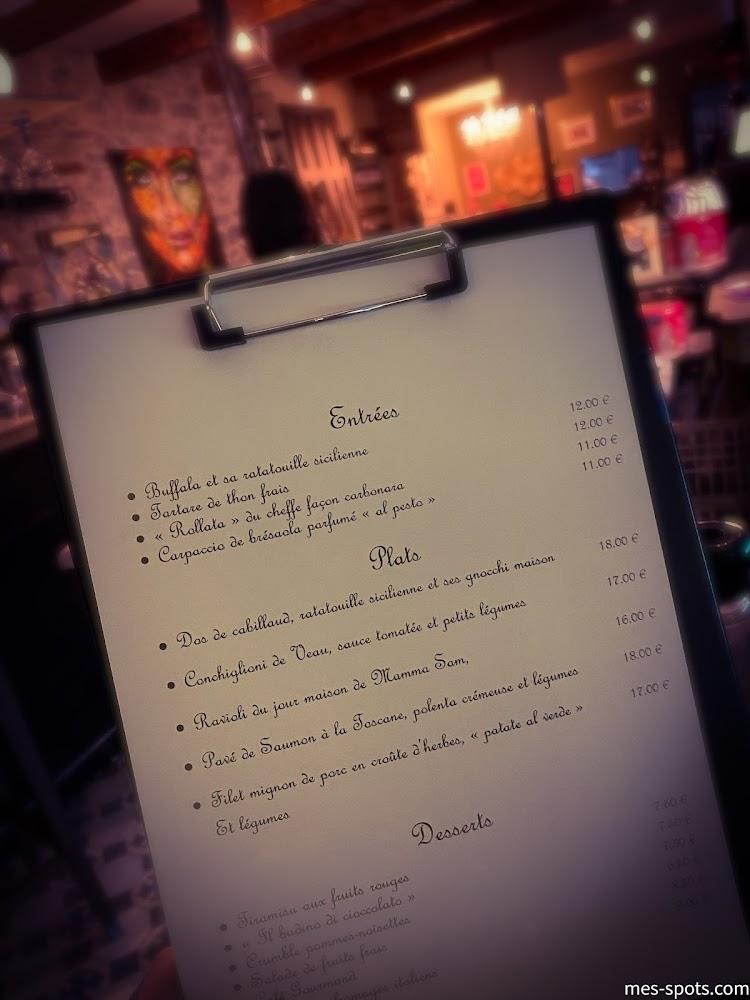 Entrées
• Buffala et sa ratatouille sicilienne 12.00 €
• Tartare de thon frais 12.00 €
• « Rollata » du cheffe façon carbonara 11.00 €
• Carpaccio de brésaola parfumé « al pesto » 11.00 €
Plats
• Dos de cabillaud, ratatouille sicilienne et ses gnocchi maison 18.00 €
• Conchiglioni de Veau, sauce tomatée et petits légumes 17.00 €
• Ravioli du jour maison de Mamma Sam, 16.00 €
• Pavé de Saumon à la Toscane, polenta crémeuse et légumes 18.00 €
• Filet mignon de porc en croûte d'herbes, « patate al verde » 17.00 €
Et légumes
Desserts
• Tiramisu aux fruits rouges
• « Il budino di cioccolato »
• Crumble pommes-noisettes
• Salade de fruits frais
Gourmand
italiens
mes-spots.com